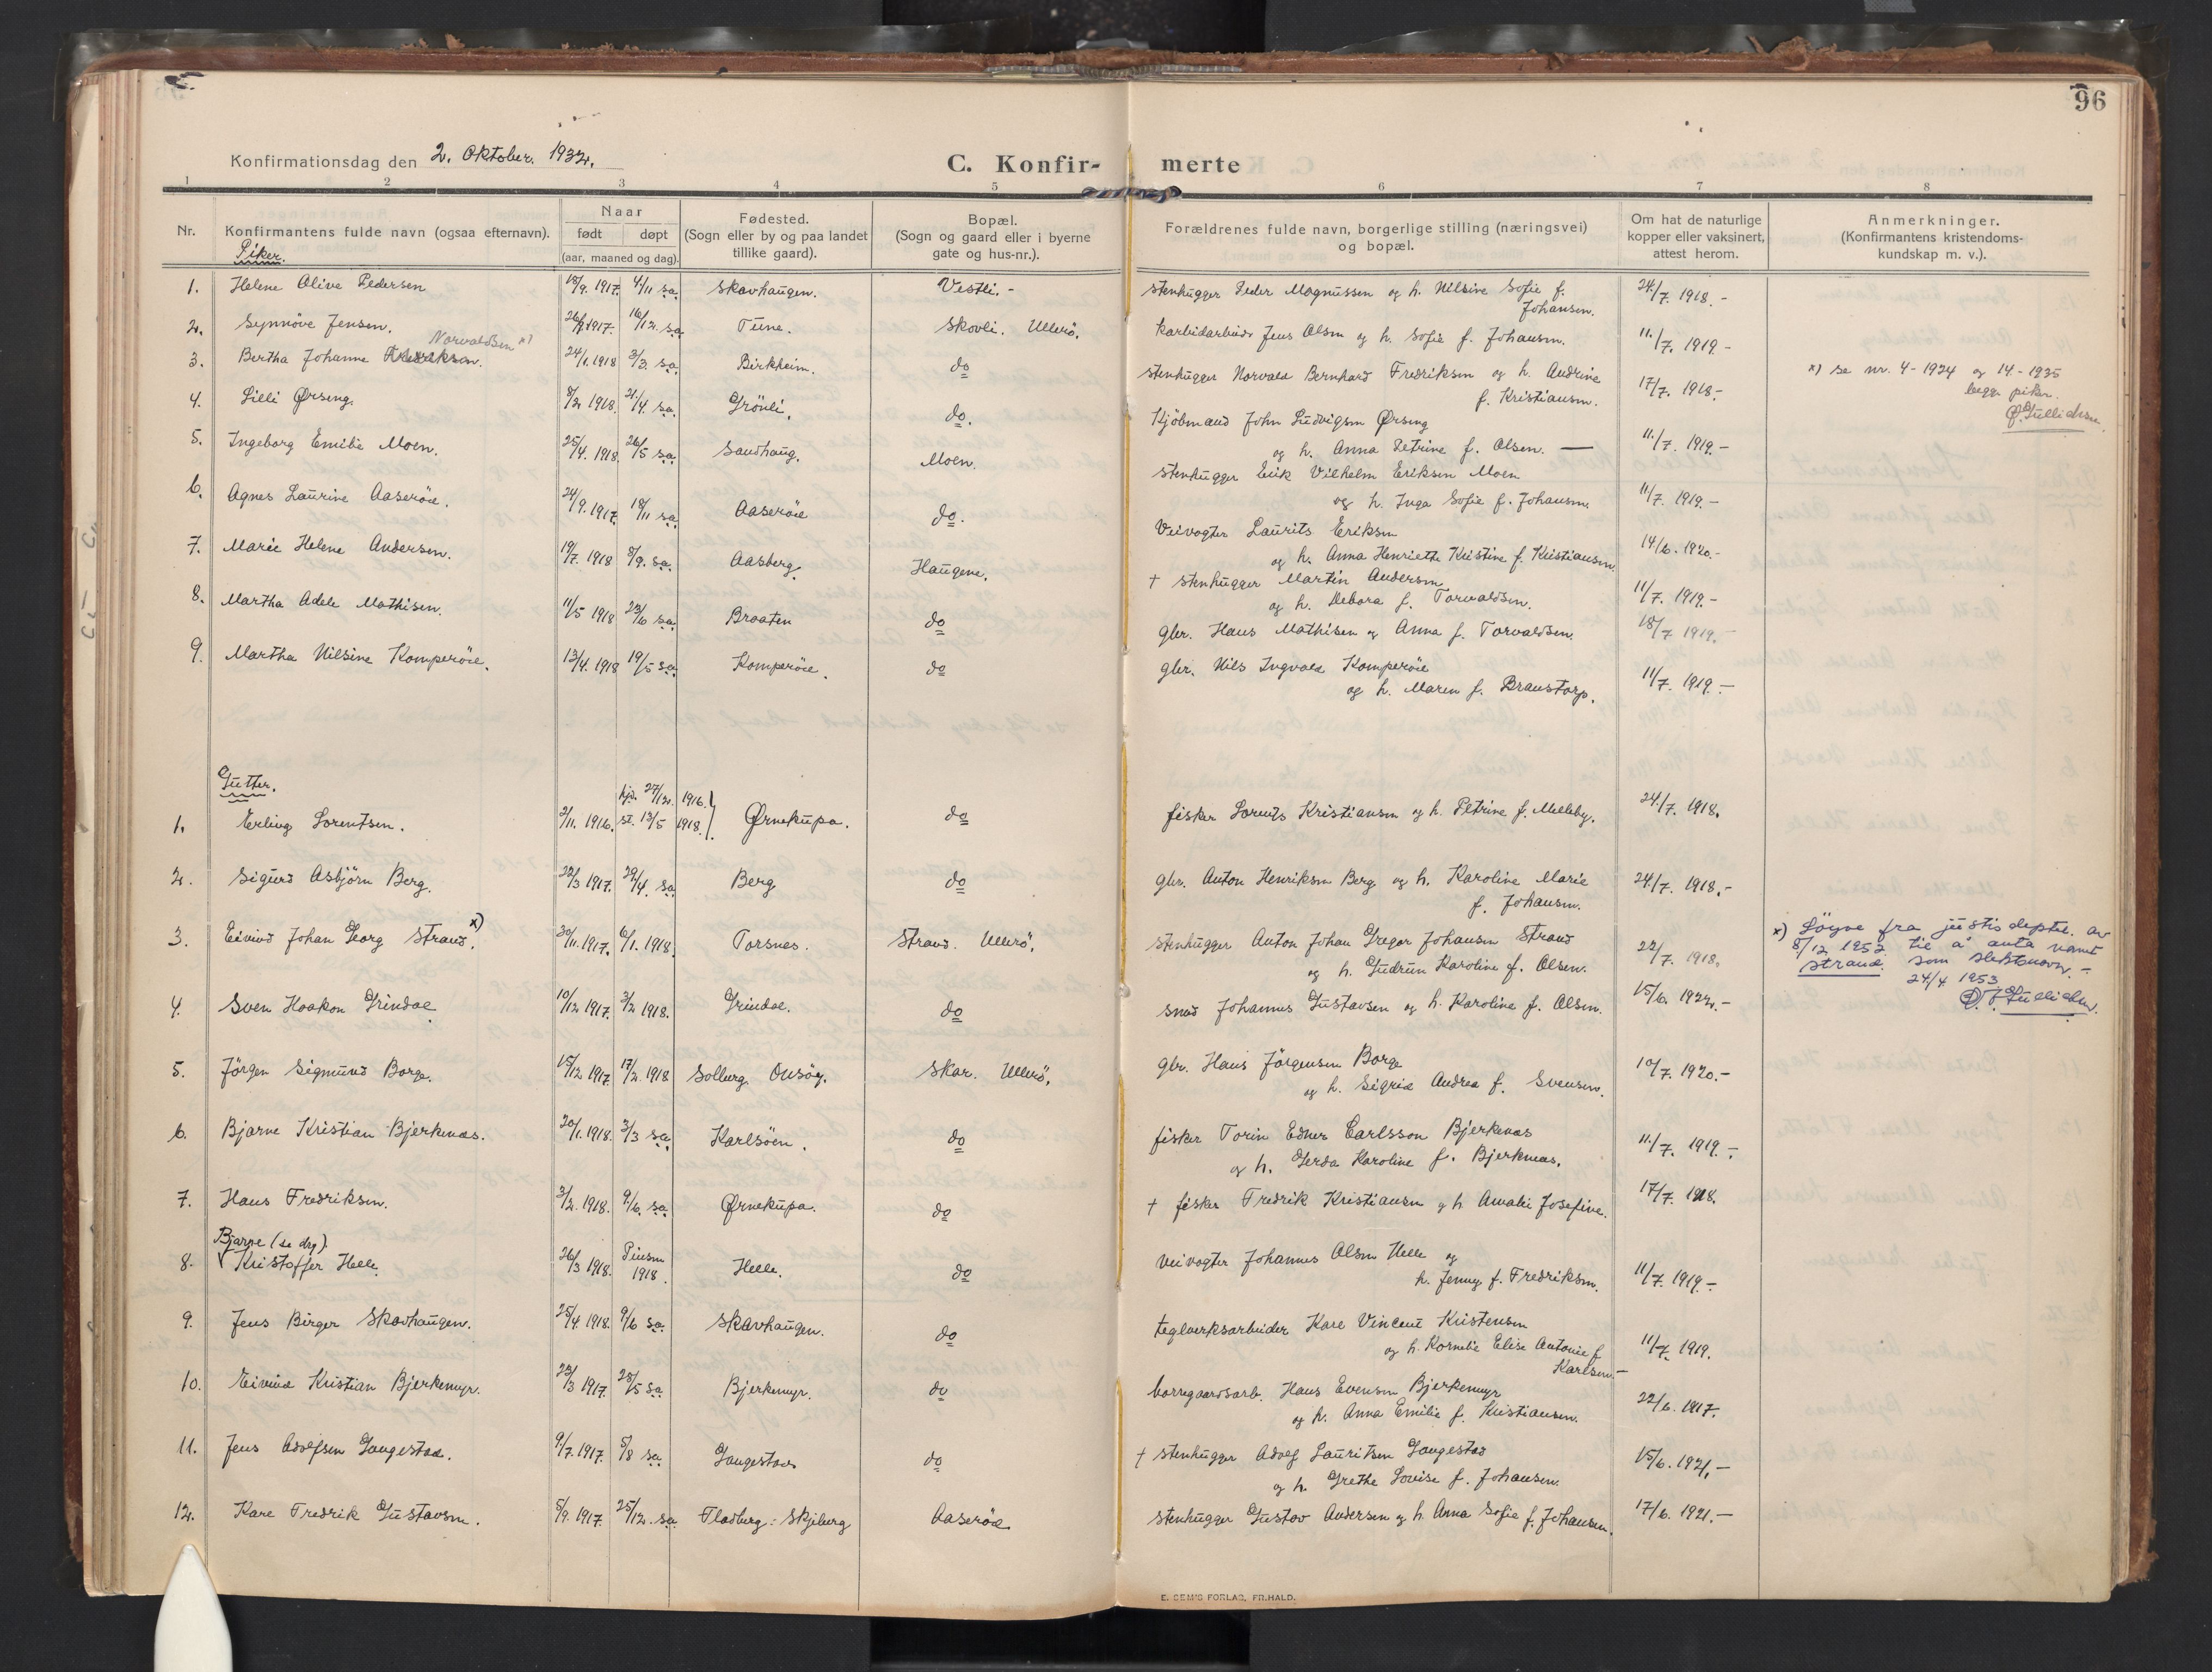 96
Konfirmationsdag den 2. Oktober. 1932.
C. Konfir- merte
1 2 3 4 5 6 7 8
Nr.
Konfirmantens fulde navn (ogsaa efternavn).
Naar
født døpt
(aar, maaned og dag).
Fødested.
(Sogn eller by og paa landet
tillike gaard).
Bopæl.
(Sogn og gaard eller i byerne
gate og hus-nr.).
Forældrenes fulde navn, borgerlige stilling (næringsvei)
og bopæl.
Om hat de naturlige
kopper eller vaksinert,
attest herom.
Anmerkninger.
(Konfirmantens kristendoms-
kundskap m. v.).
Piker.
1. Helene Olive Pedersen 18/9. 1917. 4/11 sa. Skavhaugen. Vestli.- stenhugger Peder Magnussen og h. Nilsine Sofie f. 24/7. 1918.-
Johansen.
2. Synnöve Jensen. 26/8 1917. 16/12. sa. Tune. Skovli. Ullerö. karbidarbeider Jens Olsen og h. Sofie f. Johansen. 11./7. 1919.-
Norvaldsen x)
3. Bertha Johanne Fredriksen. 24/1. 1918 3/3. sa. Birkheim. do stenhugger Norvald Bernhard Fredriksen og h. Andrine 17/7. 1918.- x) se nr. 4-1924 og 14-1935
f. Kristiansen. begge piker.
4. Lilli Ørseng. 8/2 1918. 21./4. sa. Grönli. do. Kjöbmand John Ludvigsen Ørseng
og h. Anna Petrine f. Olsen. — 11./7. 1919.-
5. Ingeborg Emilie Moen. 25/4. 1918. 26/5 sa. Sandhaug. Moen. stenhugger Erik Vilhelm Eriksen Moen
og h. Inga Sofie f. Johansen. 11/7. 1919.-
6. Agnes Laurine Aaseröd. 24/9. 1917. 18/11 sa. Aaseröd do. Veivogter Laurits Eriksen
og h. Anna Henriette Kristine f. Kristiansen. 14/6. 1920.-
7. Marie Helene Andersen. 19/7. 1918 8/9. sa. Aasberg. Haugene. † stenhugger Martin Andersen
og h. Debora f. Torvaldsen. 11/7. 1919.-
8. Martha Adele Mathisen. 11/5 1918 23/6 sa. Braaten do gbr. Hans Mathisen og Anna f. Torvaldsen. 18/7 1919.-
9. Martha Nilsine Komperöd. 13/4. 1918 19/5 sa. Komperöd. do gbr. Nils Ingvald Komperöd
og h. Maren f. Branstorp. 11/7. 1919.-
Gutter.
hjd. 27/12. 1916.
1. Erling Lorentsen. 2/11. 1916. st. 13/5 1918. Ørnekupa. do fisker Lorents Kristiansen og h. Petrine f. Melleby. 24./7. 1918.
2. Sigurd Asbjörn Berg. 22/3 1917. 29/4. sa. Berg do gbr. Anton Henriksen Berg og h. Karoline Marie 24/7. 1918.-
f. Johansen.
3. Eivind Johan Georg Strand. x) 30/11. 1917. 6/1. 1918. Torsnes. Strand. Ullerö. stenhugger Anton Johan Gregor Johansen Strand
og h. Gudrun Karoline f. Olsen. 22/7. 1918.
x) Löyve fra justisdeptet. av
8/12 1952 til å anta namnet
Strand. som slektsnavn. -
24/4 1953
4. Sven Haakon Grindal 10/12 1917. 3/2 1918. Grindal. do smed Johannes Gustavsen og h. Karoline f. Olsen. 15/6. 1922.-
5. Jörgen Sigmund Borge. 15/12 1917 17/2. 1918 Solberg. Onsöy. Skar. Ullerö. gbr. Hans Jörgensen Borge
og h. Sigrid Andrea f. Svensen. 10/7. 1920.-
6. Bjarne Kristian Bjerkenæs. 20/1. 1918. 3/3 sa. Karlsöen. do fisker Torin Edner Carlsson Bjerkenæs
og h. Gerda Karoline f. Bjerknæs. 11./7. 1919.-
7. Hans Fredriksen. 3/2. 1918. 9/6. sa. Ørnekupa. do † fisker Fredrik Kristiansen og h. Amalie Josefine. 17/7. 1918.
Bjarne (se drg)
8. Kristoffer Helle. 26/3 1918. Pinsen 1918. Helle. do Veivogter Johannes Olsen Helle og
h. Jenny f. Fredriksen. 11/7. 1919.-
9. Jens Birger Skavhaugen. 25/4 1918. 9/6 sa. Skavhaugen. do teglverksarbeider Kare Vincent Kristensen
og h. Kornelie Elise Antonie f. 11/7. 1919.
Karlsen.-
10. Eivind Kristian Bjerkemyr. 23/3 1917. 28/5 sa. Bjerkemyr. do borregaardsarb. Hans Evensen Bjerkemyr
og h. Anna Emilie f. Kristiansen. 22/6. 1917.
11. Jens Adolfsen Gangestad. 9/7. 1917. 5/8 sa. Gangestad do † stenhugger Adolf Lauritsen Gangestad
og h. Grethe Lovise f. Johansen. 15/6. 1921.-
12. Kare Fredrik Gustavsen. 5/9. 1917. 25/12. sa. Fladberg: Skjeberg Aaseröd stenhugger Gustav Andersen og h. Anna Sofie f. Johansen. 17/6. 1921.-
E. SEM'S FORLAG, FR.HALD.